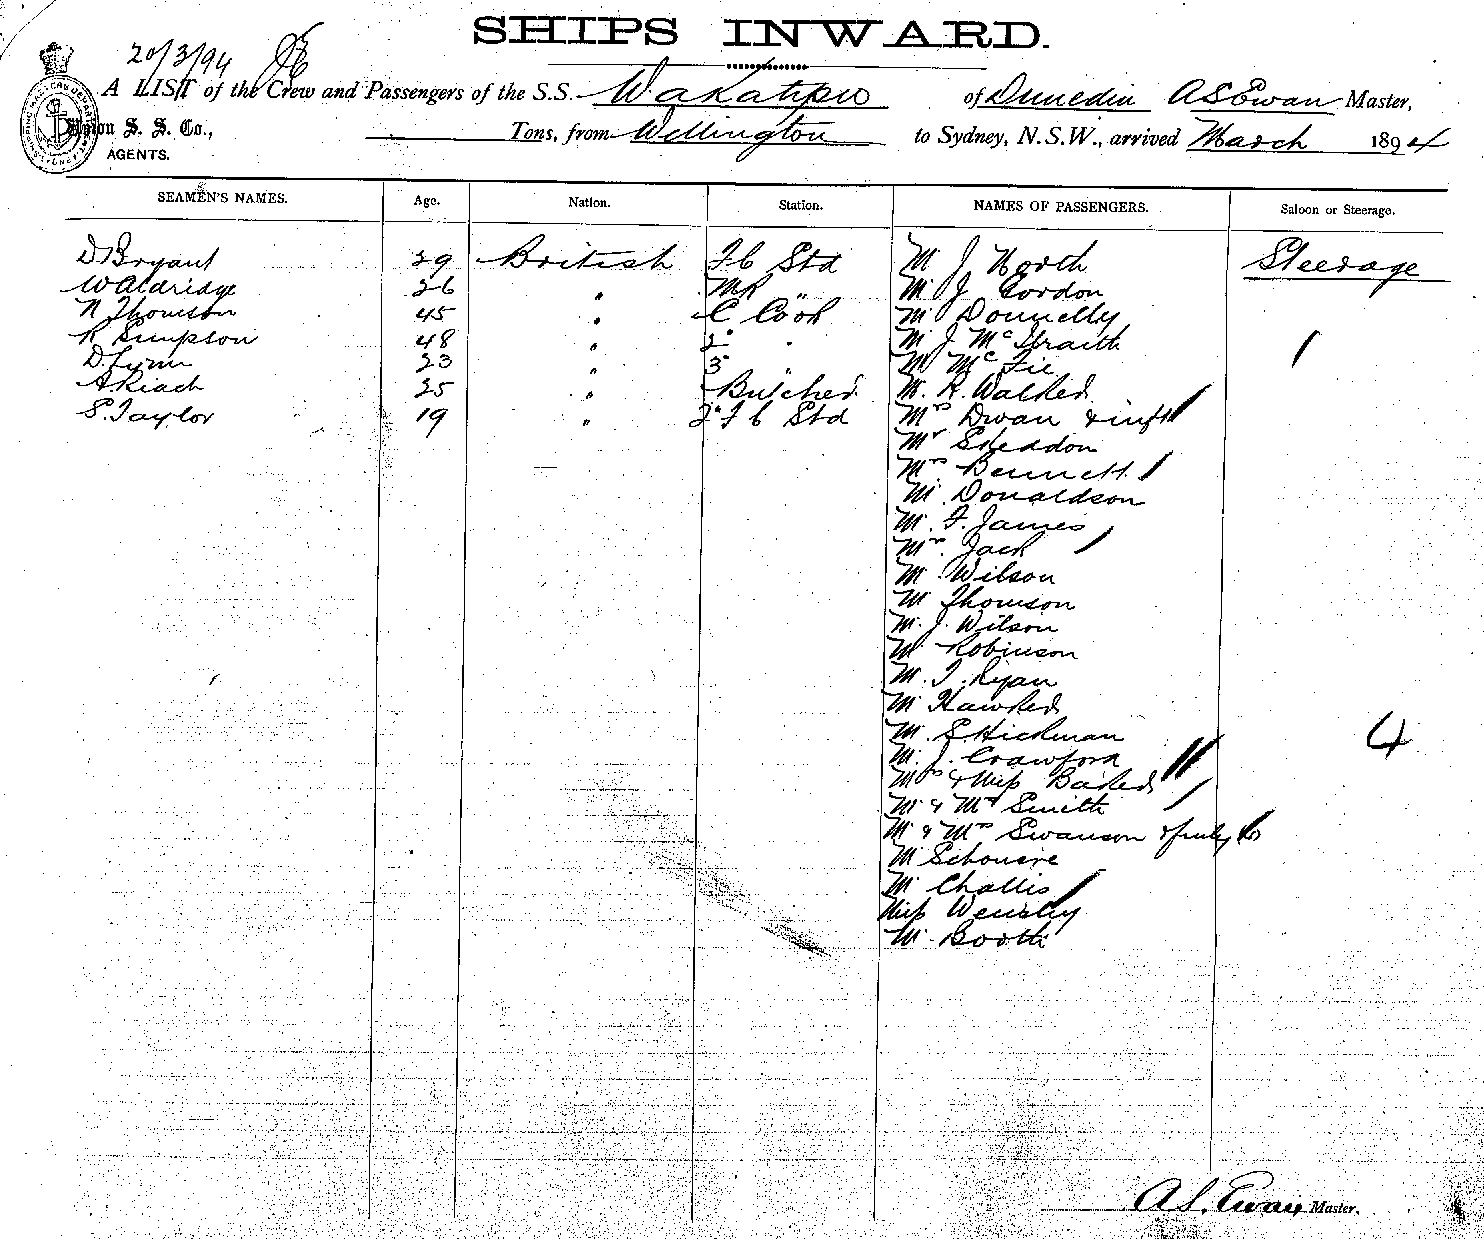 SHIPS INWARD.
20/3/94
A LIST of the Crew and Passengers of the S.S. Wakatipu of Dunedin A S Ewan Master,
Union S. S. Co., Tons, from Wellington to Sydney, N.S.W., arrived March 1894
AGENTS.
SEAMEN'S NAMES. Age. Nation. Station. NAMES OF PASSENGERS. Saloon or Steerage.
D Bryant 29 British F C Std M J North Steerage
W Aldridge 26 " MR " M J Gordon
N Thomson 45 " C Cook M Donnelly
R Simpson 48 " 2 " M J McIlraith 1
D. Lynn 23 " 3 " M McFie
A Riach 25 " Butcher M. R. Walker
S. Taylor 19 " 2 F C Std Mrs Dwan & inft
Mr Sheddon
Mrs Bennett
M. Donaldson
M. F. James
Mrs. Jack
M. Wilson
M Thomson
M. J. Wilson
M Robinson
M. T. Ryan
M Hawker
M. S. Hickman 4
M. J. Crawford
Mrs & Miss Baker
M & Mrs Smith
M & Mrs Swanson & family
M Schouere
M Challis
Miss Wensley
M. Booth
A S. Ewan Master.